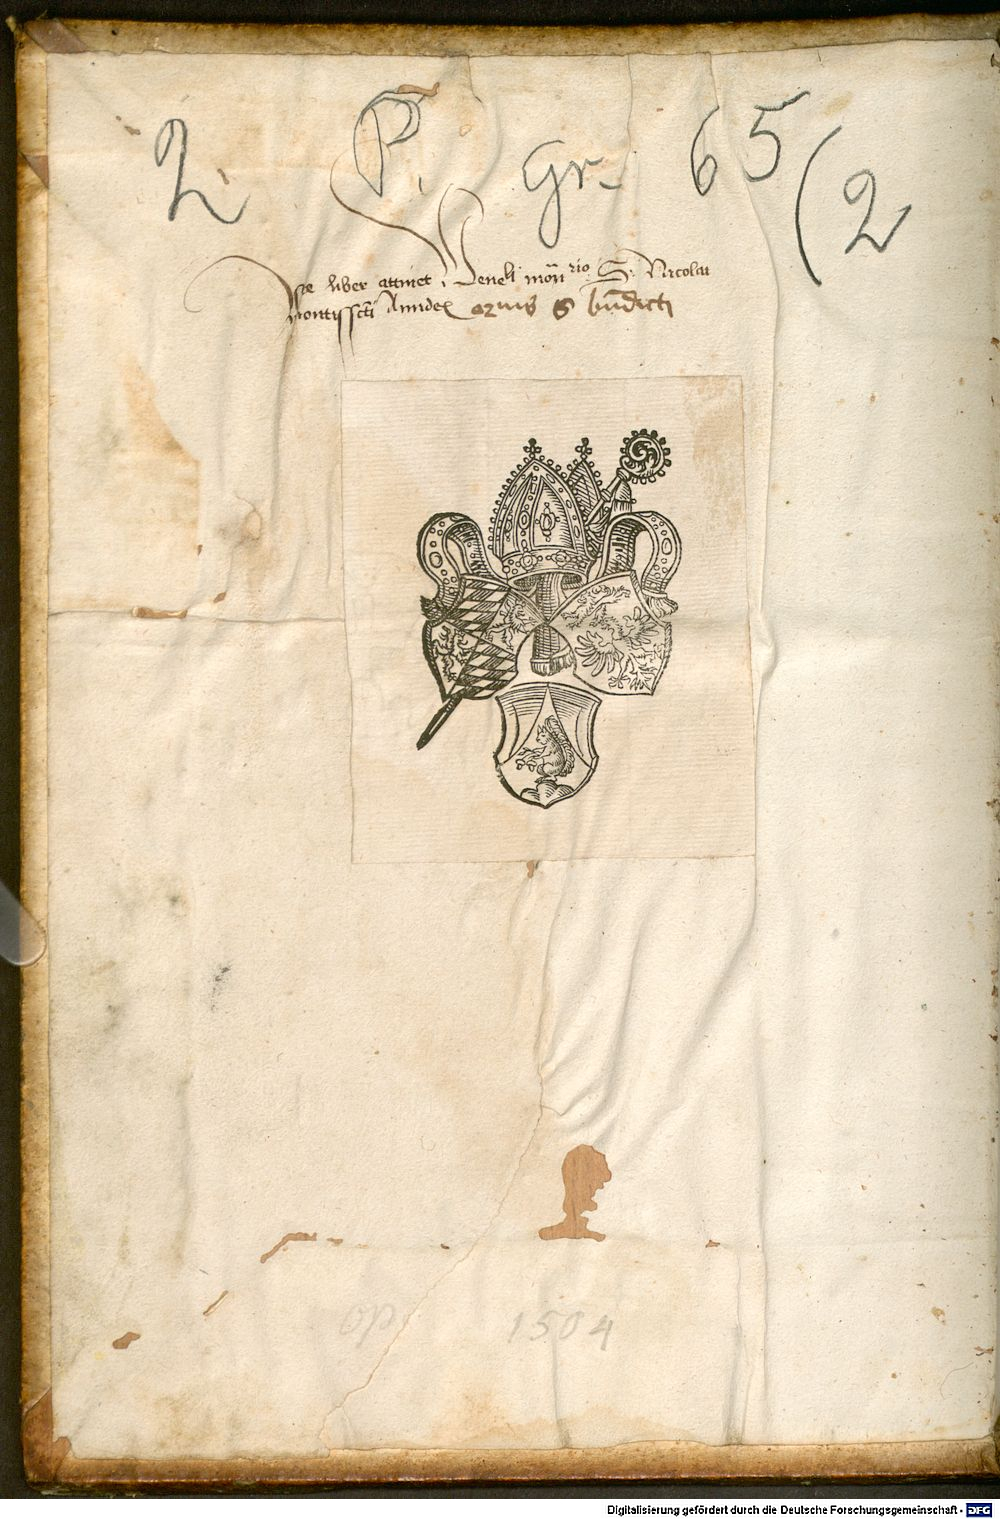 2 P. gr. 65 (2
Iste liber attinet Ven̄eli mon̄rio S. Nicolai
montissc̄ti Anndex ordinis S bn̄dicti
op 1504
Digitalisierung gefördert durch die Deutsche Forschungsgemeinschaft - DFG